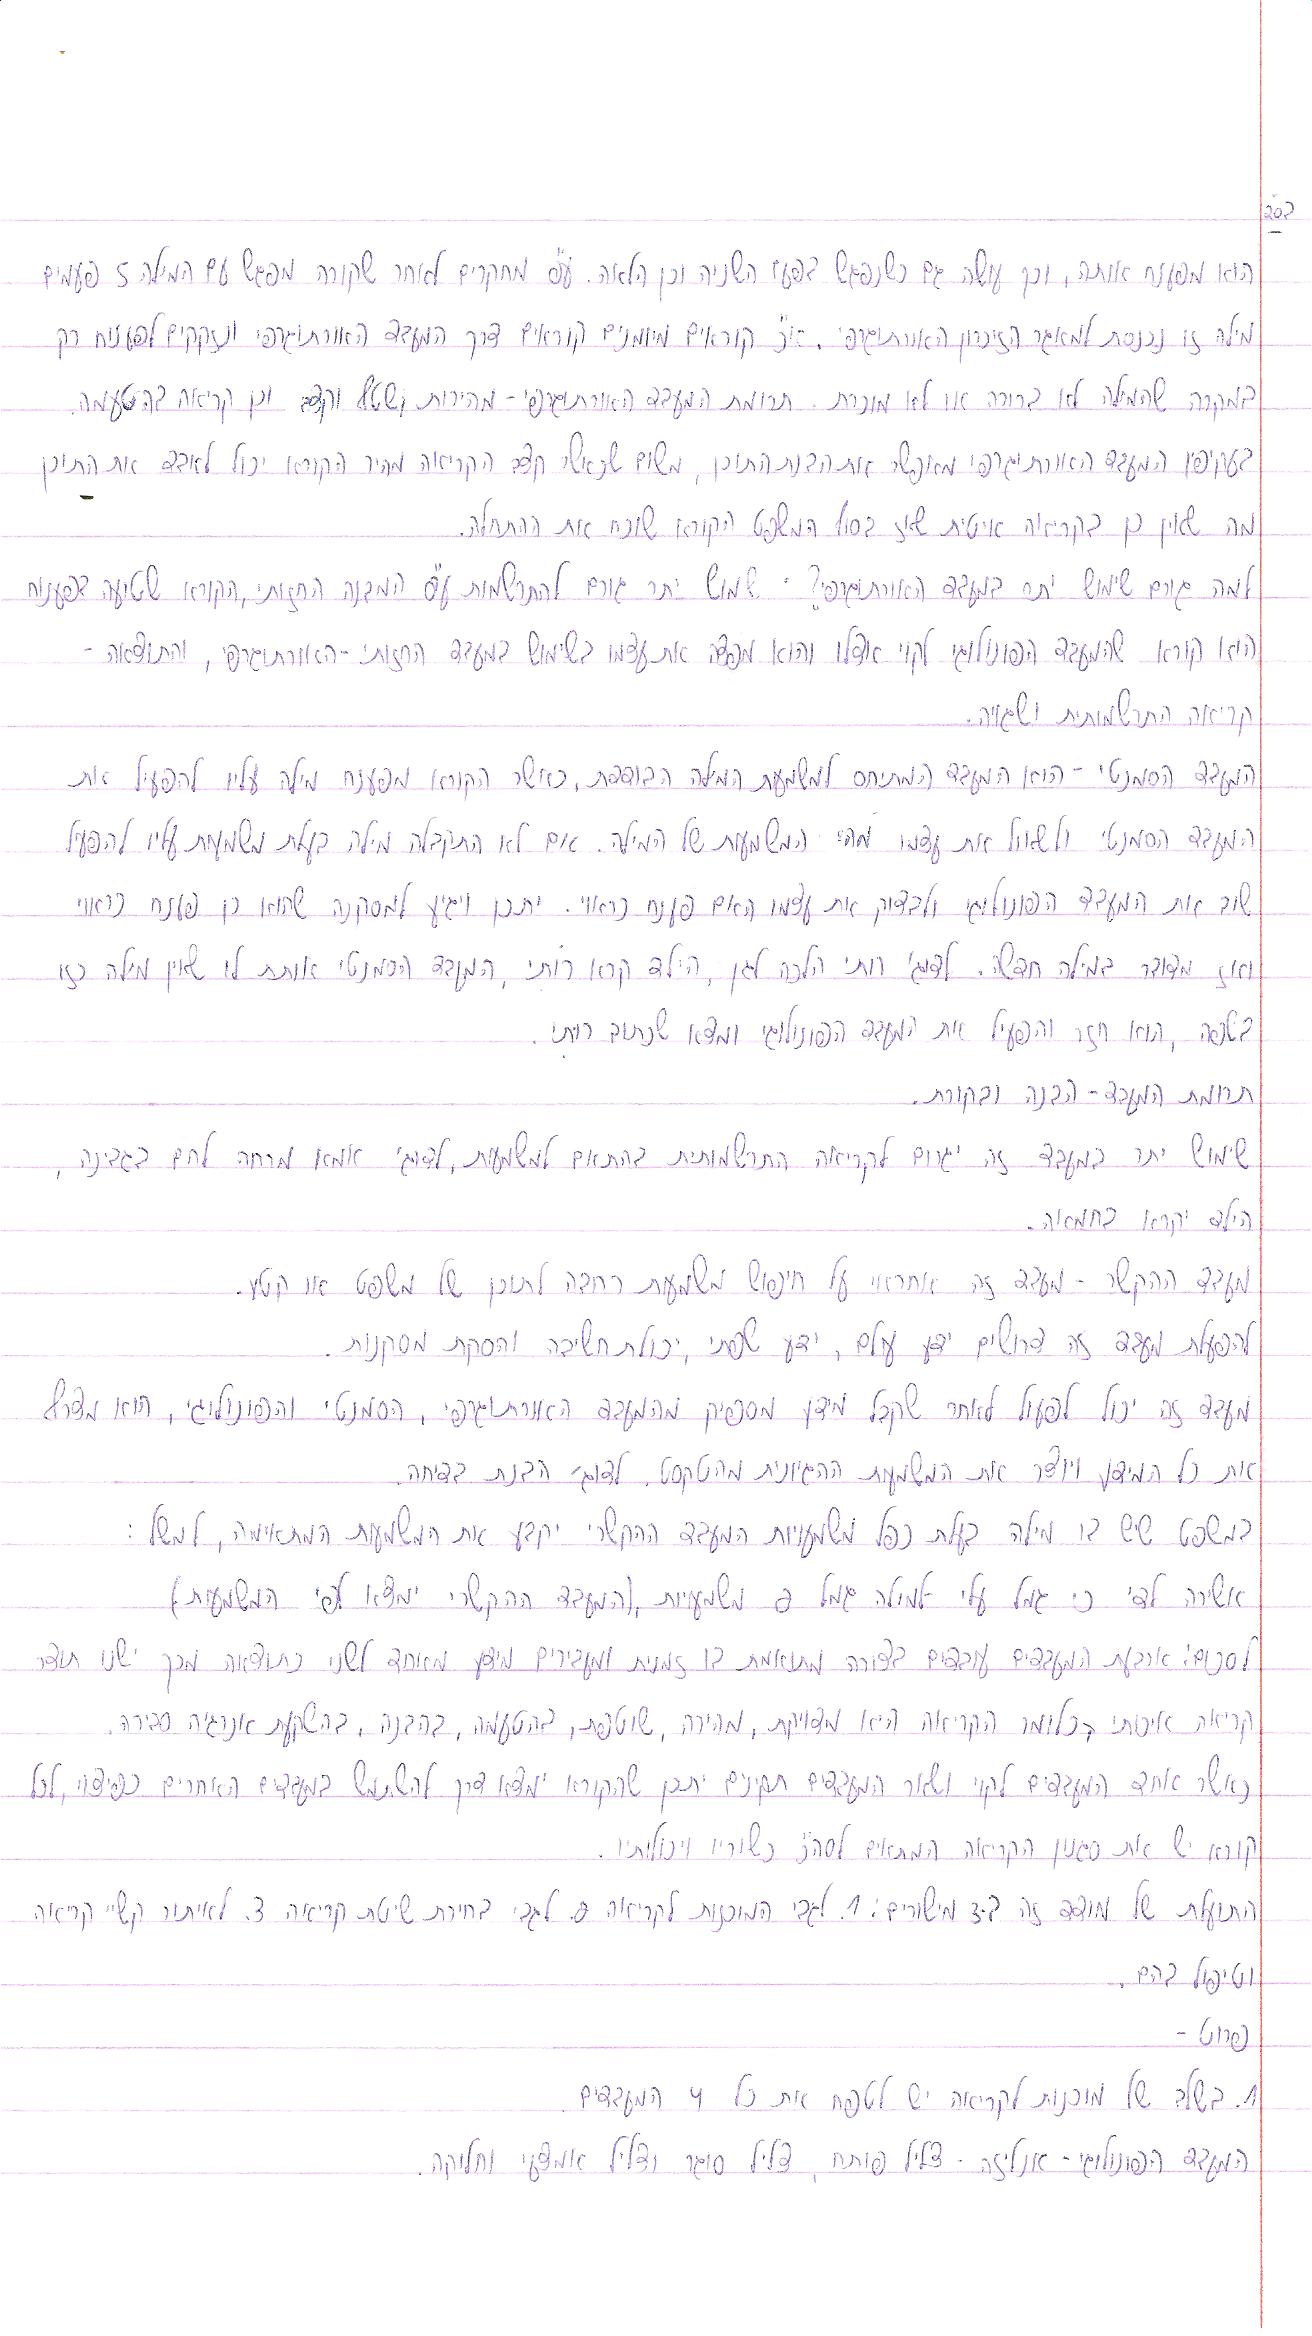 בס"ד
הוא מפענח אותה, וכך עושה גם כשנפגש בפעם השניה וכן הלאה. ע"פ מחקרים לאחר שקורה מפגש עם המילה 5 פעמים
מילה זו נכנסת למאגר הזיכרון האורתוגרפי. א"כ קוראים מיומנים קוראים דרך המעבד האורתוגרפי ונזקקים לפענוח רק
במקרה שהמילה לא ברורה או לא מוכרת. תרומת המעבד האורתוגרפי - מהירות, שטף וקצב וכן קריאה בהטעמה.
בעקיפין המעבד האורתוגרפי מאפשר את הבנת התוכן, משום שכאשר קצב הקריאה מהיר הקורא יכול לאבד את התוכן
מה שאין כן בקריאה איטית שאז בסוף המשפט הקורא שוכח את ההתחלה.
למה גורם שימוש יתר במעבד האורתוגרפי? - שמוש יתר גורם להתרשמות ע"פ המבנה החזותי, הקורא שטועה בפענוח
הוא קורא שהמעבד הפונולוגי לקוי אצלו והוא מפצה את עצמו בשימוש במעבד החזותי-האורתוגרפי, והתוצאה -
קריאה התרשמותית ושגויה.
המעבד הסמנטי - הוא המעבד המתיחס למשמעות המילה הבודדת, כאשר הקורא מפענח מילה עליו להפעיל את
המעבד הסמנטי ולשאול את עצמו מהי המשמעות של המילה. אם לא התקבלה מילה בעלת משמעות עליו להפעיל
שוב את המעבד הפונולוגי ולבדוק את עצמו האם פענח כראוי. יתכן ויגיע למסקנה שהוא כן פענח כראוי
ואז מדובר במילה חדשה. לדוג' רותי הלכה לגן, הילד קרא רותי, המעבד הסמנטי אותת לו שאין מילה כזו
בשפה, הוא חזר והפעיל את המעבד הפונולוגי ומצא שכתוב רותי.
תרומת המעבד - הבנה ובקורת.
שימוש יתר במעבד זה יגרום לקריאה התרשמותית בהתאם למשמעות, לדוג' אמא מרחה לחם בגבינה,
הילד יקרא בחמאה.
מעבד ההקשר - מעבד זה אחראי על חיפוש משמעות רחבה לתוכן של משפט או קטע.
להפעלת מעבד זה דרושים ידע עולם, ידע שפתי, יכולת חשיבה והסקת מסקנות.
מעבד זה יכול לפעול לאחר שקבל מידע מספיק מהמעבד האורתוגרפי, הסמנטי והפונולוגי, הוא מצרף
את כל המידע ויוצר את המשמעות ההגיונית מהטקסט. לדוג' הבנת בדיחה.
במשפט שיש בו מילה בעלת כפל משמעויות המעבד ההקשרי יקבע את המשמעות המתאימה, למשל:
אשירה לד' כי גמל עלי למילה גמל 2 משמעויות, (המעבד ההקשרי ימצא לפי המשמעות.)
לסכום: ארבעת המעבדים עובדים בצורה מתואמת בו זמנית ומעבירים מידע מאוחד לשני כתוצאה מכך ישנו תוצר
קריאה איכותי כלומר הקריאה היא מדויקת, מהירה, שוטפת, בהטעמה, בהבנה, בהשקעת אנרגיה סבירה.
כאשר אחד המעבדים לקוי ושאר המעבדים תקינים יתכן שהקורא ימצא דרך להשתמש במעבדים האחרים כפיצוי, לכל
קורא יש את סגנון הקריאה המתאים לסה"כ כשוריו ויכולותיו.
התועלת של מודל זה ב-3 מישורים: 1. לגבי המוכנות לקריאה 2. לגבי בחירת שיטת קריאה 3. לאיתור קשיי קריאה
וטיפול בהם.
פרוט -
1. בשלב של מוכנות לקריאה יש לטפח את כל 4 המעבדים.
המעבד הפונולוגי - אנליזה - צליל פותח, צליל סוגר וצליל אמצעי וחלוקה.